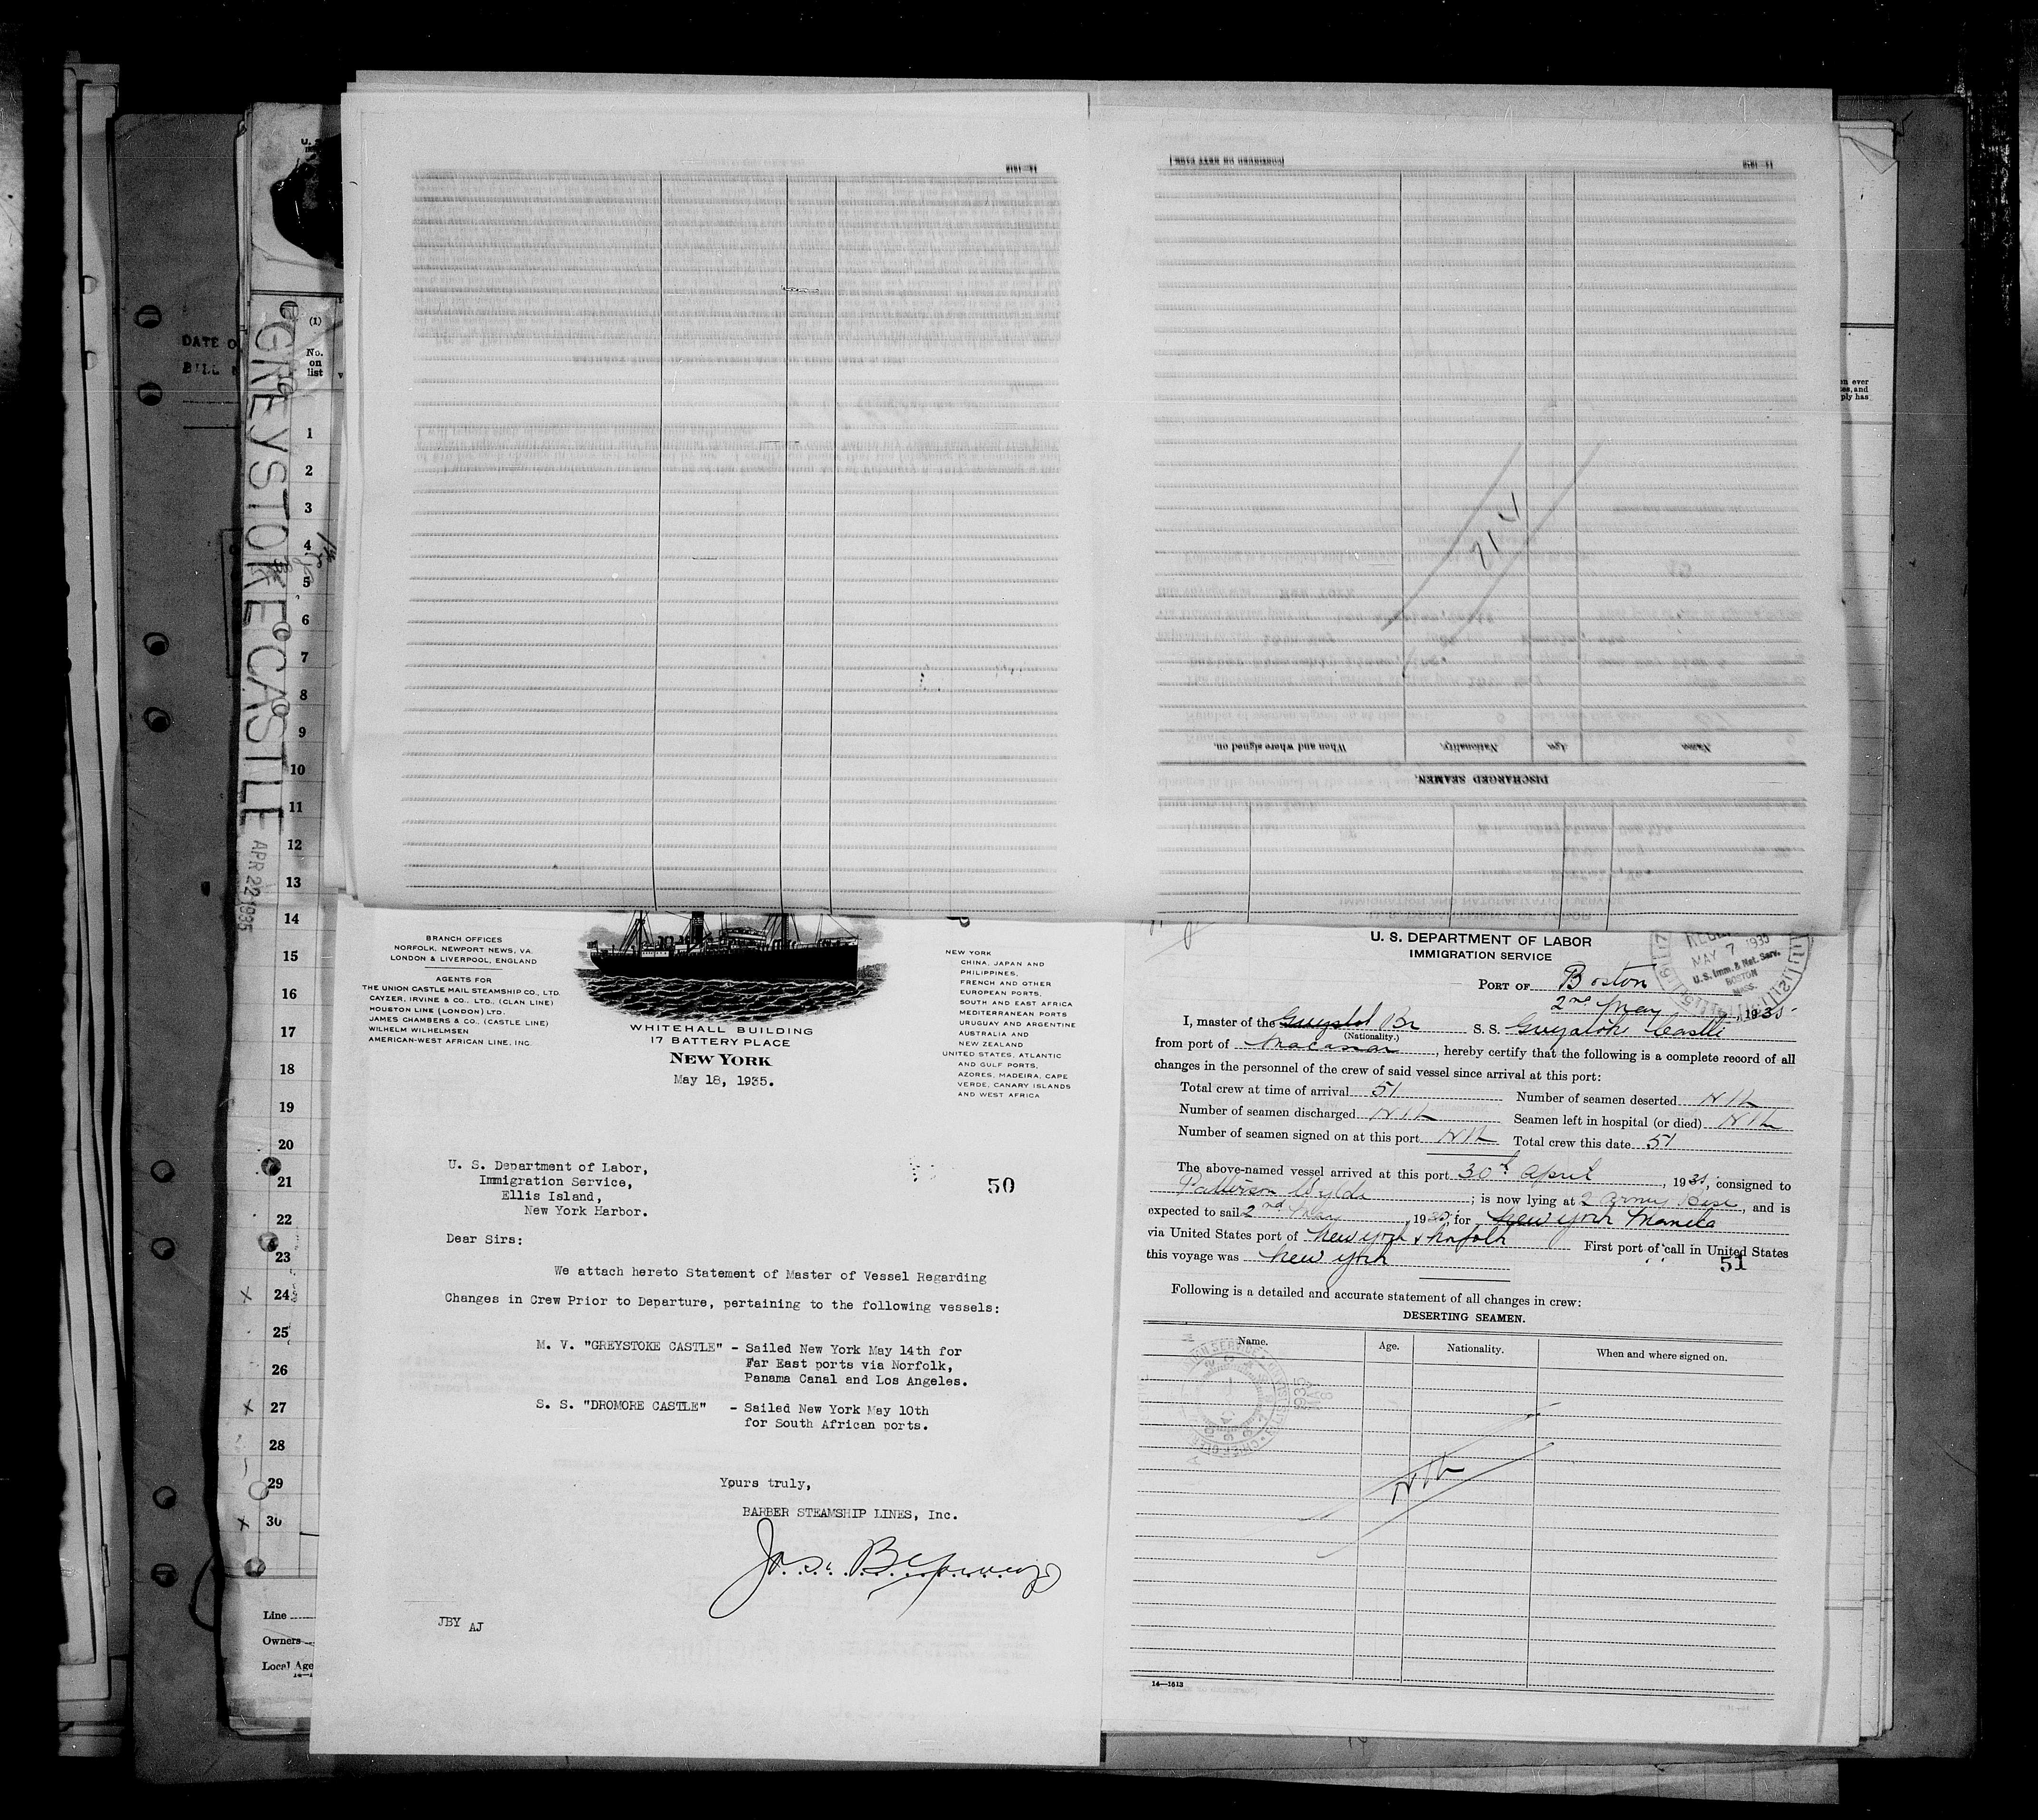 DATE O
BILL
GREYSTOKE CASTLE
APR 22 1935
(1)
No.
on
list
1
2
3
4
5
6
7
8
9
10
11
12
13
14
15
16
17
18
19
20
21
22
23
24
25
26
27
28
29
30
Line
Owners
Local Age
14—1613
(CONTINUED ON NEXT PAGE)
14—1613
When and where signed on.
Nationality.
Age.
Name.
DISCHARGED SEAMEN.
BRANCH OFFICES
NORFOLK, NEWPORT NEWS, VA.
LONDON & LIVERPOOL, ENGLAND
AGENTS FOR
THE UNION CASTLE MAIL STEAMSHIP CO., LTD.
CAYZER, IRVINE & CO., LTD., (CLAN LINE)
HOUSTON LINE (LONDON) LTD.
JAMES CHAMBERS & CO., (CASTLE LINE)
WILHELM WILHELMSEN
AMERICAN-WEST AFRICAN LINE, INC.
WHITEHALL BUILDING
17 BATTERY PLACE
NEW YORK
May 18, 1935.
NEW YORK
CHINA, JAPAN AND
PHILIPPINES,
FRENCH AND OTHER
EUROPEAN PORTS,
SOUTH AND EAST AFRICA
MEDITERRANEAN PORTS
URUGUAY AND ARGENTINE
AUSTRALIA AND
NEW ZEALAND
UNITED STATES, ATLANTIC
AND GULF PORTS,
AZORES, MADEIRA, CAPE
VERDE, CANARY ISLANDS
AND WEST AFRICA
U. S. Department of Labor,
Immigration Service,
Ellis Island,
New York Harbor.
50
Dear Sirs:
We attach hereto Statement of Master of Vessel Regarding
Changes in Crew Prior to Departure, pertaining to the following vessels:
M. V. "GREYSTOKE CASTLE" - Sailed New York May 14th for
Far East ports via Norfolk,
Panama Canal and Los Angeles.
S. S. "DROMORE CASTLE" - Sailed New York May 10th
for South African ports.
Yours truly,
BARBER STEAMSHIP LINES, Inc.
JBY AJ
en ever
tes, and
ply has
U. S. DEPARTMENT OF LABOR
IMMIGRATION SERVICE
MAY 7 1935
U.S. Imm. & Nat. Serv.
BOSTON
MASS.
PORT OF Boston
2nd May, 1935
I, master of the Br S. S. Greystoke Castle
(Nationality.)
from port of Macassar, hereby certify that the following is a complete record of all
changes in the personnel of the crew of said vessel since arrival at this port:
Total crew at time of arrival 51 Number of seamen deserted Nil
Number of seamen discharged Nil Seamen left in hospital (or died) Nil
Number of seamen signed on at this port Nil Total crew this date 51
The above-named vessel arrived at this port 30th April, 1935, consigned to
Patterson Wylde; is now lying at 2 Army Base, and is
expected to sail 2nd May, 1935, for New York Manila
via United States port of New York & Norfolk First port of call in United States
this voyage was New York
51
Following is a detailed and accurate statement of all changes in crew:
DESERTING SEAMEN.
Name. Age. Nationality. When and where signed on.
Nil
14—1613